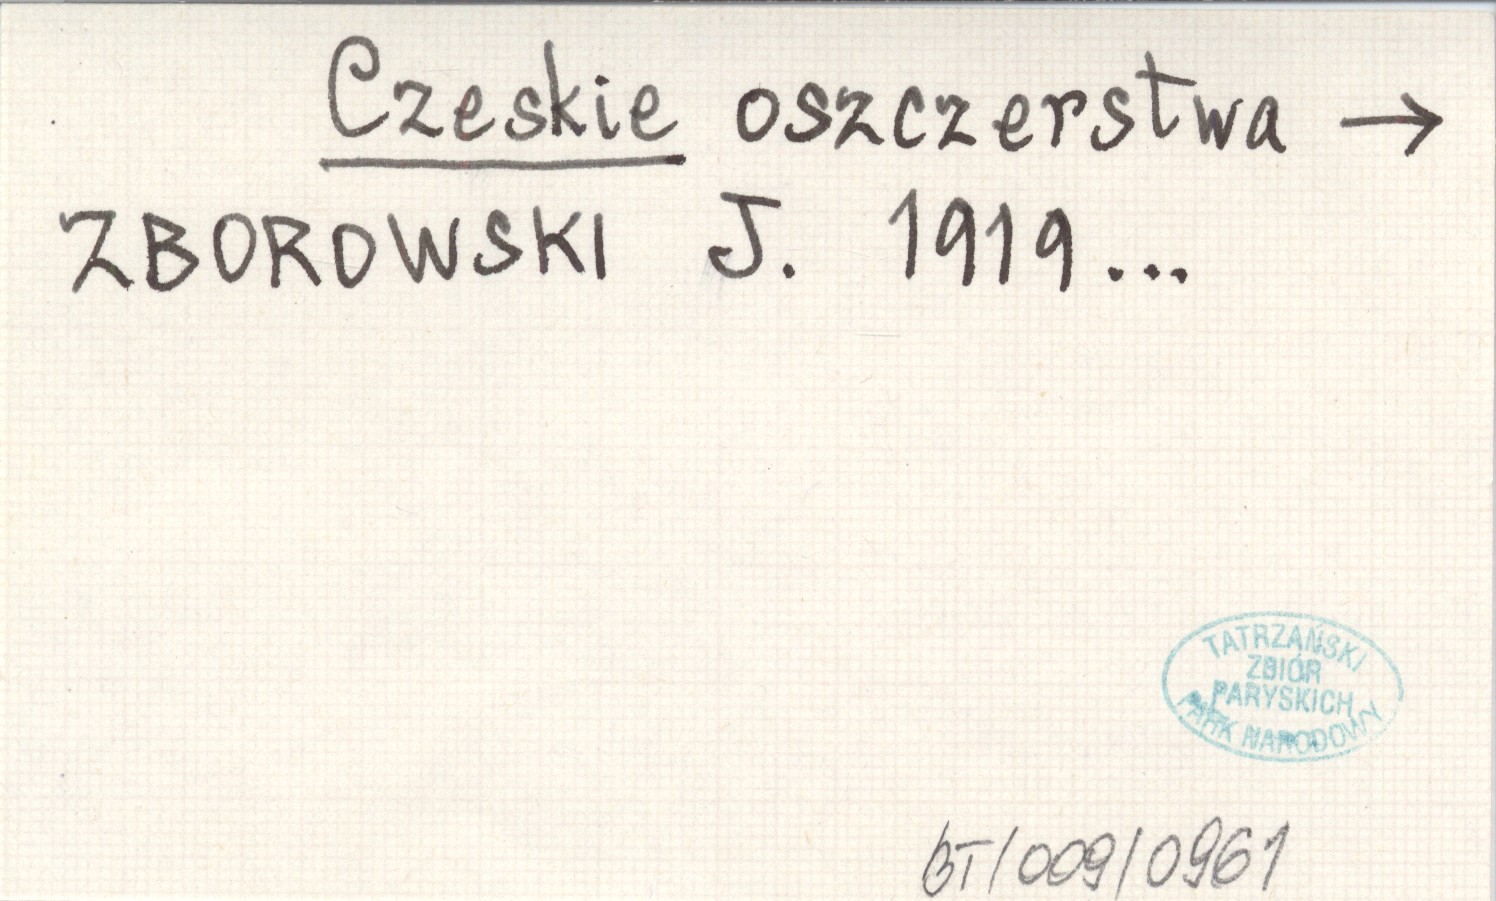 Czeskie oszczerstwa →
ZBOROWSKI J. 1919...
TATRZAŃSKI
ZBIÓR
PARYSKICH
PARK NARODOWY
BT/009/0961